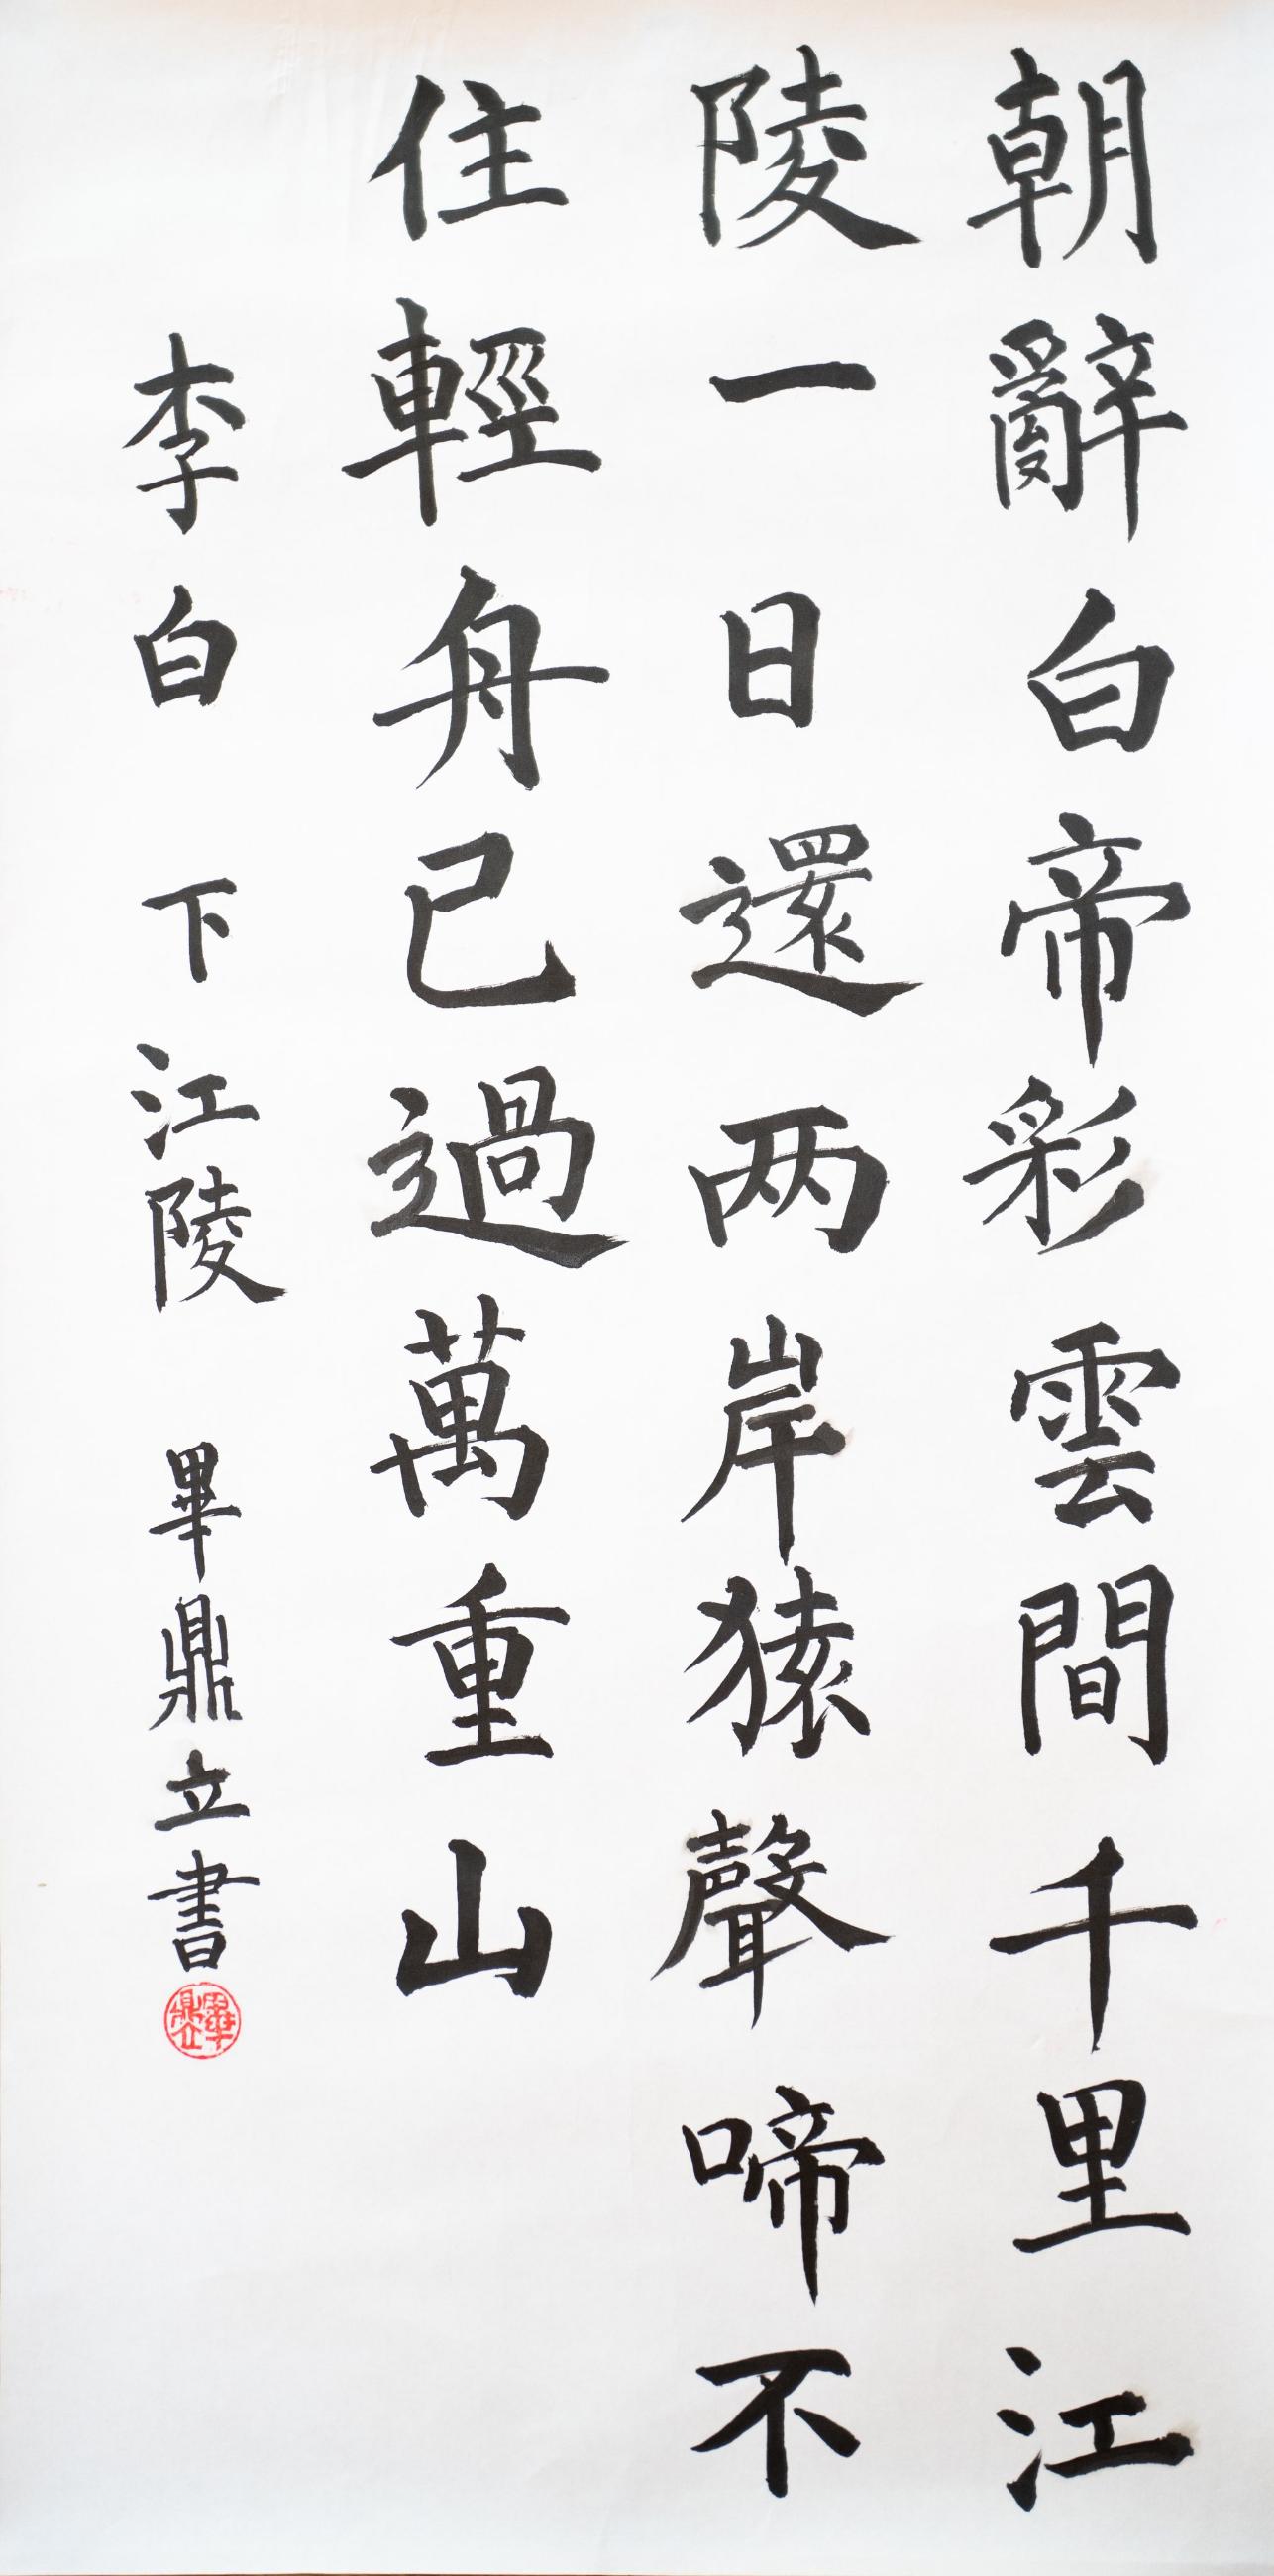 朝辭白帝彩雲間千里江
陵一日還两岸猿聲啼不
住輕舟已過萬重山
李白 下江陵 畢鼎立書
畢鼎立